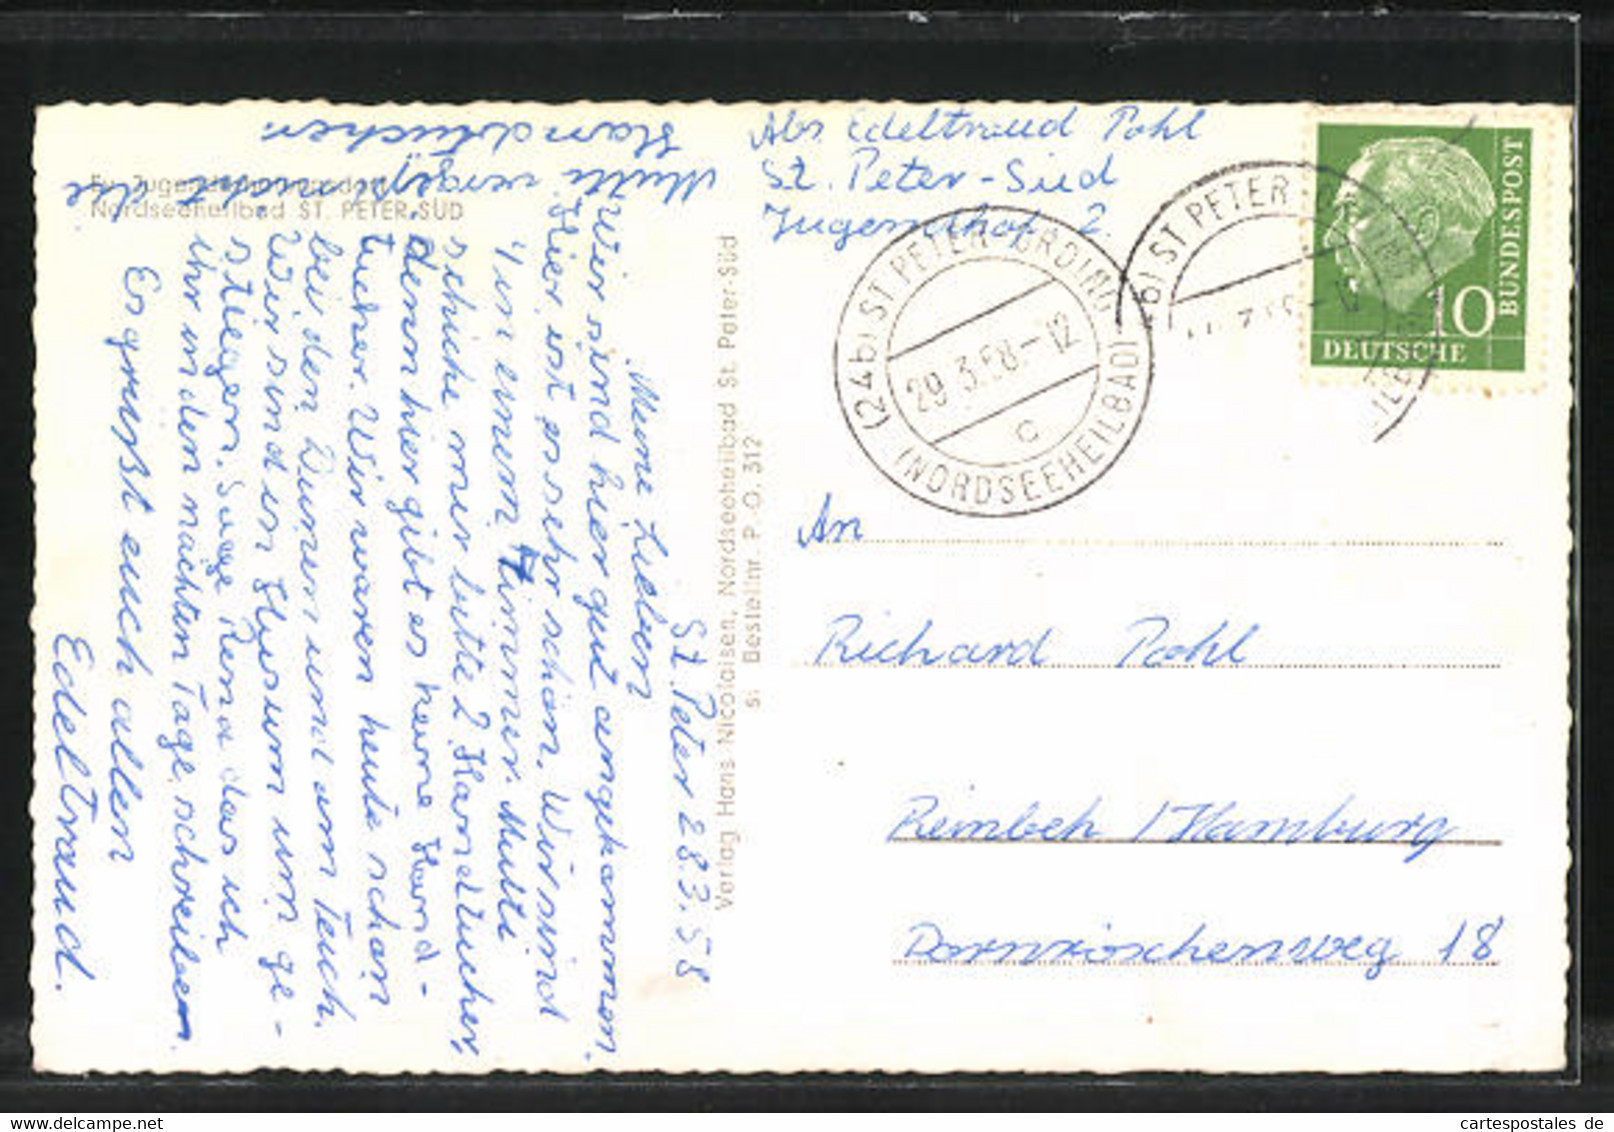 Ev. Jugenderholungsdorf
Nordseeheilbad ST. PETER-SÜD
St. Peter 28.3.58
Meine Lieben
Wir sind hier gut angekommen.
Hier ist es sehr schön. Wir sind
4 in einem Zimmer. Mutti
schicke mir bitte 2 Handtücher,
denn hier gibt es keine Hand-
tücher. Wir waren heute schon
bei den Dünen und am Teich.
Wir sind in Husum umge-
stiegen. Sage Rena das ich
ihr in den nächten Tage schreiben
Es grüßt euch allen
Edeltraud.
Mutti vergiß nicht die
Handtücher
Verlag Hans Nicolaisen, Nordseeheilbad St. Peter-Süd
si Bestellnr. P. O. 312
Abs Edeltraud Pohl
St. Peter-Süd
Jugendhof 2.
(24b) ST PETER-ORDING
29.3.58.-12
c
(NORDSEEHEILBAD)
ST PETER
DEUTSCHE
BUNDESPOST
10
An
Richard Pohl
Reinbek / Hamburg
Dornröschenweg 18
cartespostales de